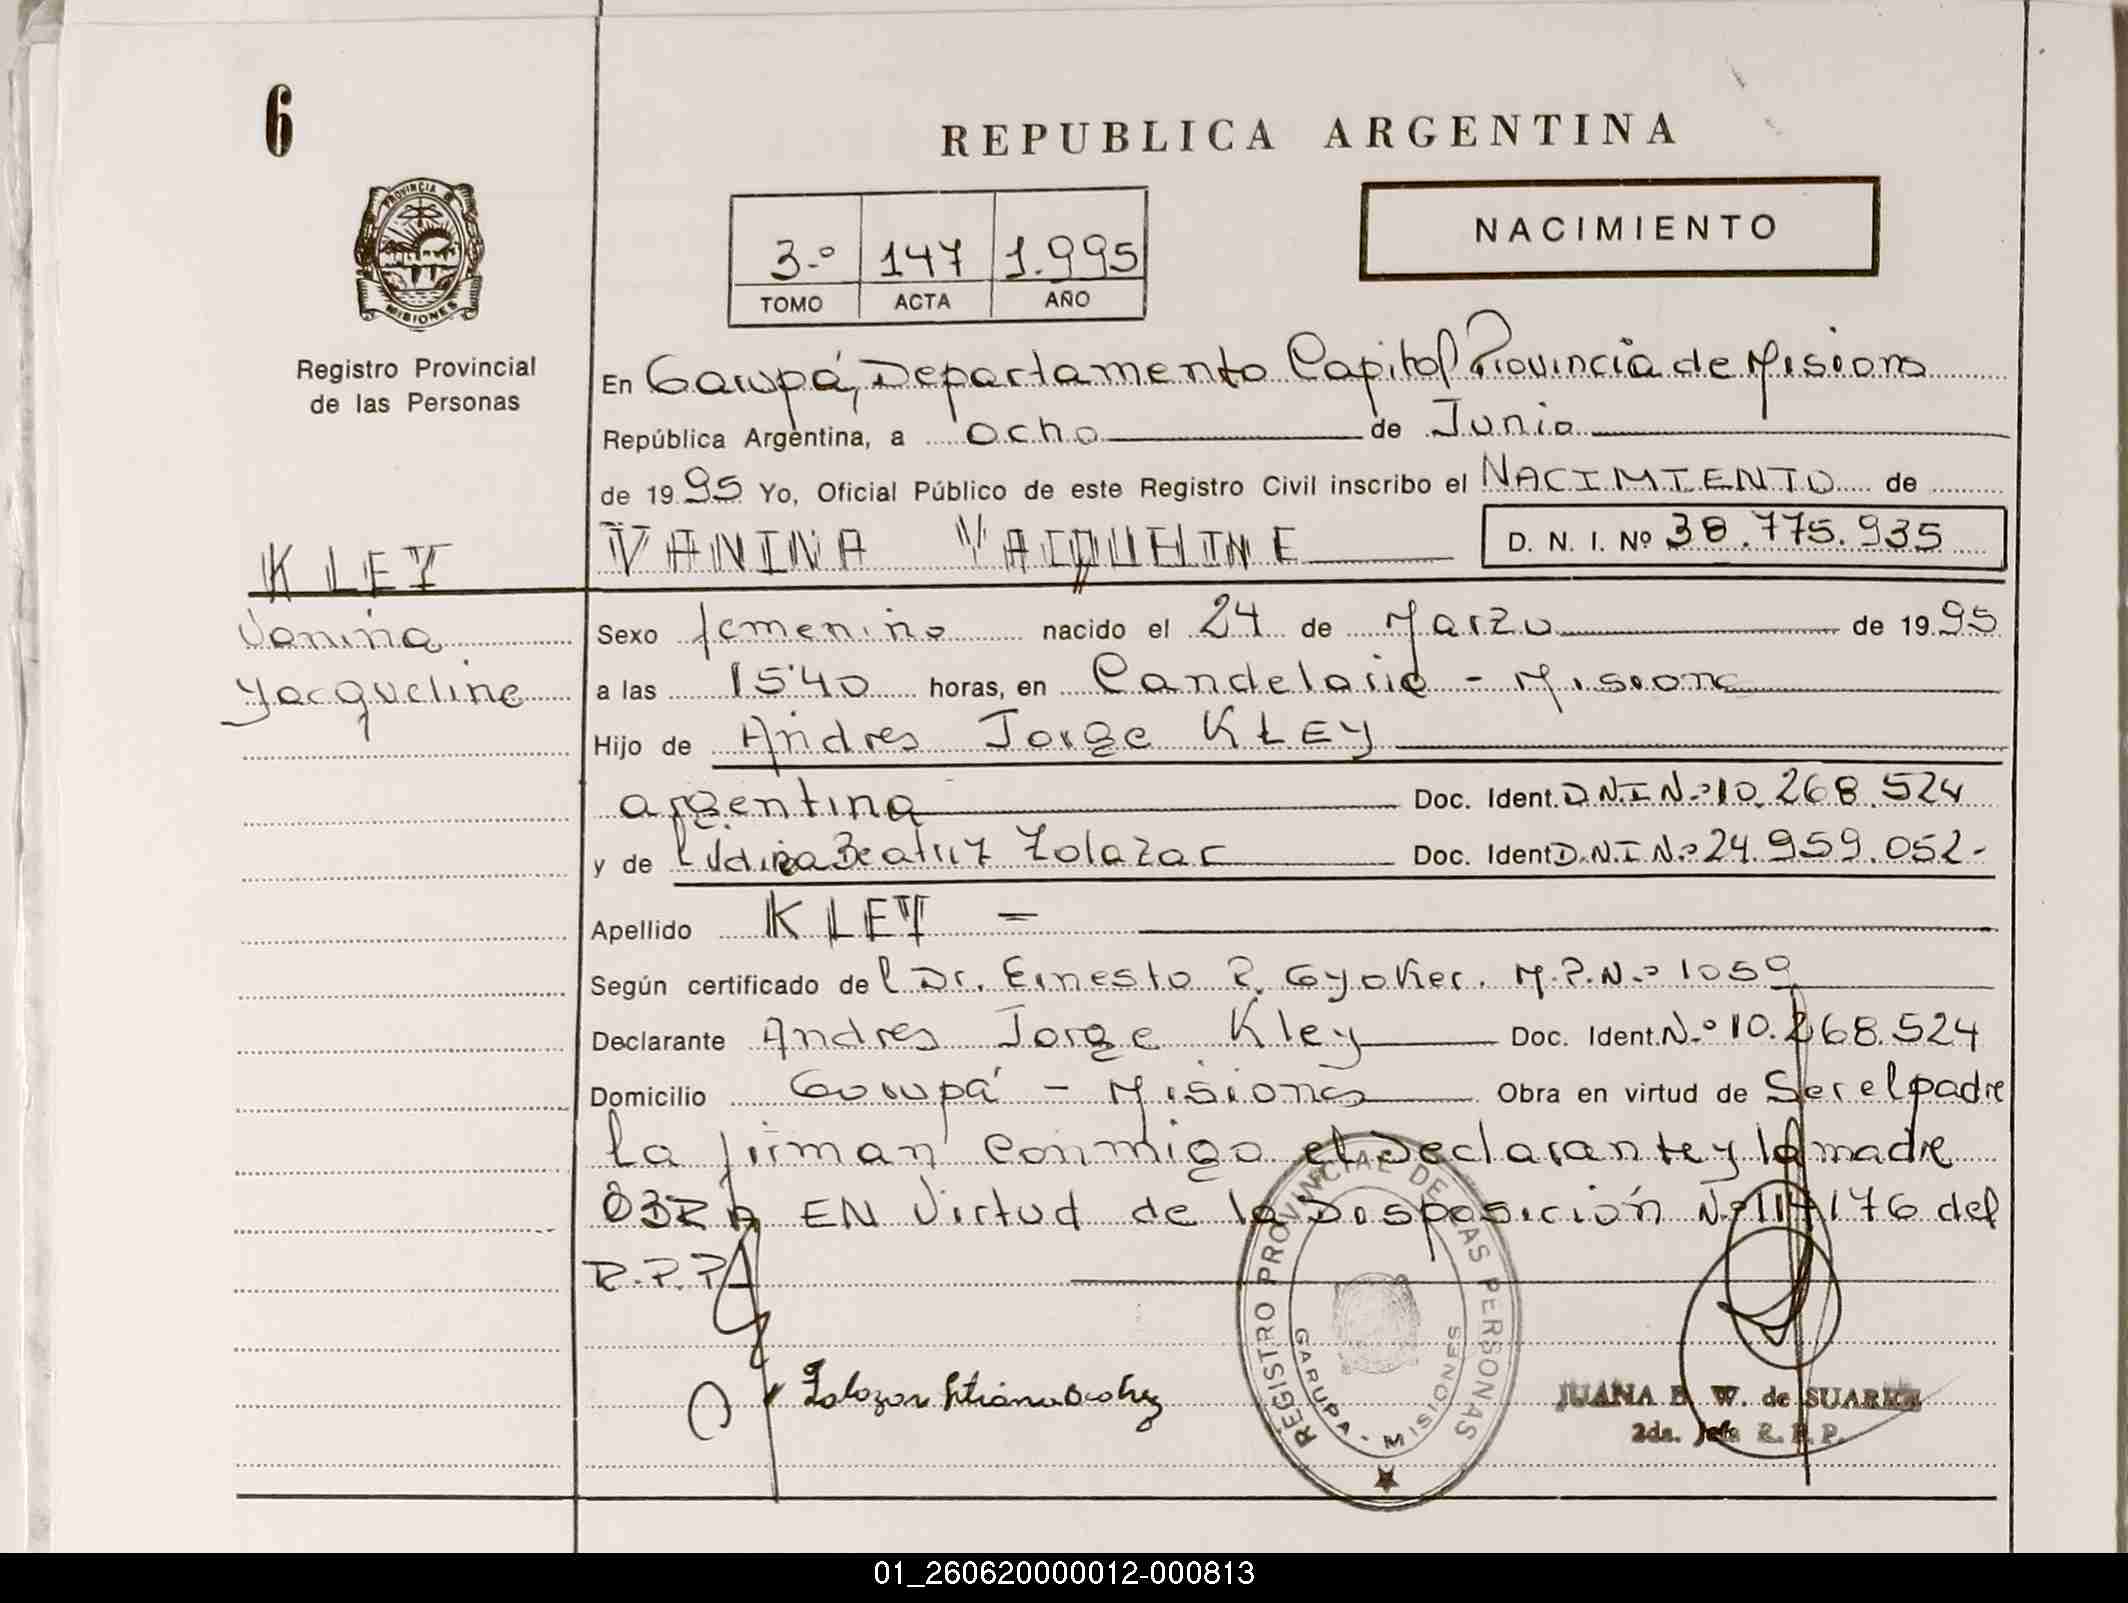 6
REPUBLICA ARGENTINA
PROVINCIA
MISIONES
Registro Provincial
de las Personas
3.º 147 1.995
TOMO ACTA AÑO
NACIMIENTO
En Garupá, Departamento Capital Provincia de Misiones
República Argentina, a ocho de Junio
de 1995 Yo, Oficial Público de este Registro Civil inscribo el NACIMIENTO de
KLEY
VANINA YACQUELINE D. N. I. Nº 38.775.935
Vanina
Yacqueline
Sexo femenino nacido el 24 de Marzo de 1995
a las 15'40 horas, en Candelaria - Misiones
Hijo de Andres Jorge KLEY
argentina Doc. Ident. D.N.I N.º 10.268.524
y de Beatriz Zolazar Doc. Ident D.N.I N.º 24.959.052-
Apellido KLEY -
Según certificado del Dr. Ernesto R. Gyoker. M.P.N.º 1059
Declarante Andres Jorge Kley Doc. Ident. N.º 10.268.524
Domicilio Garupá - Misiones Obra en virtud de Ser el padre
La firman conmigo el declarante y la madre
OBRA EN Virtud de la Disposición N.º 114/76 del
R.P.P.
REGISTRO PROVINCIAL DE LAS PERSONAS
GARUPA - MISIONES
JUANA E. W. de SUAREZ
2da. Jefa R. P. P.
01_260620000012-000813